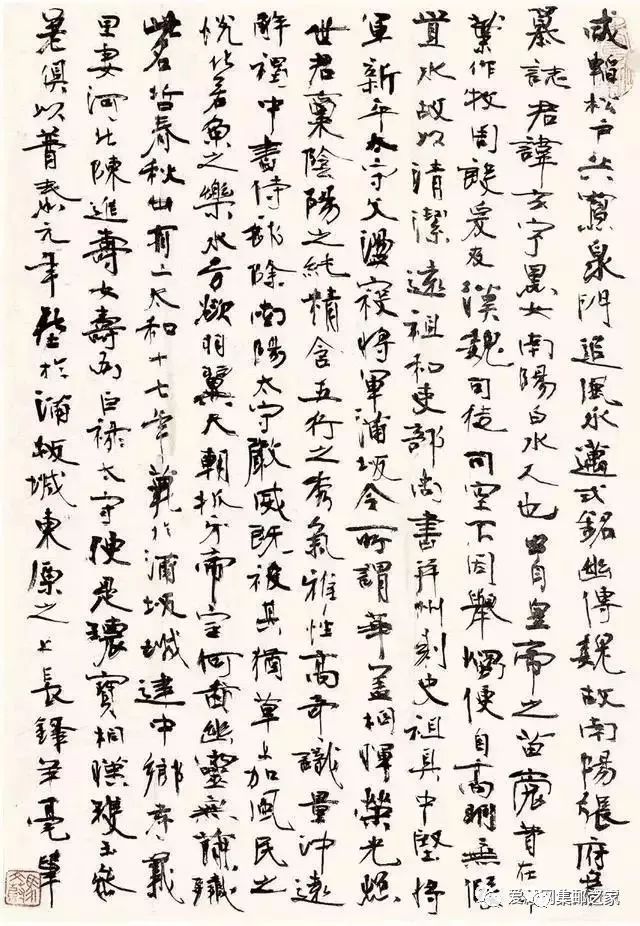 咸韜松戶共寒泉門追風永邁式銘幽傳魏故南陽張府君
墓誌君諱玄字黑女南陽白水人也出自皇帝之苗裔昔在中
葉作牧周殷爰及漢魏司徒司空不因舉燭便自高明無假
置水故以清潔遠祖和吏部尚書并州刺史祖具中堅將
軍新平太守父盪寇將軍蒲坂令所謂華蓋相暉榮光照
世君稟陰陽之純精含五行之秀氣雅性高奇識量沖遠
解褐中書侍郎除南陽太守嚴威既被其猶草上加風民之
悅化若魚之樂水方欲羽翼天朝抓牙帝室何啚幽靈無簡殲
此名哲春秋卅有二太和十七年薨於蒲坂城建中鄉孝義
里妻河北陳進壽女壽為巨祿太守便是瓌寶相暎瓊玉參
差俱以普泰元年於蒲坂城東原之上長鋒羊毫筆
网集邮之家